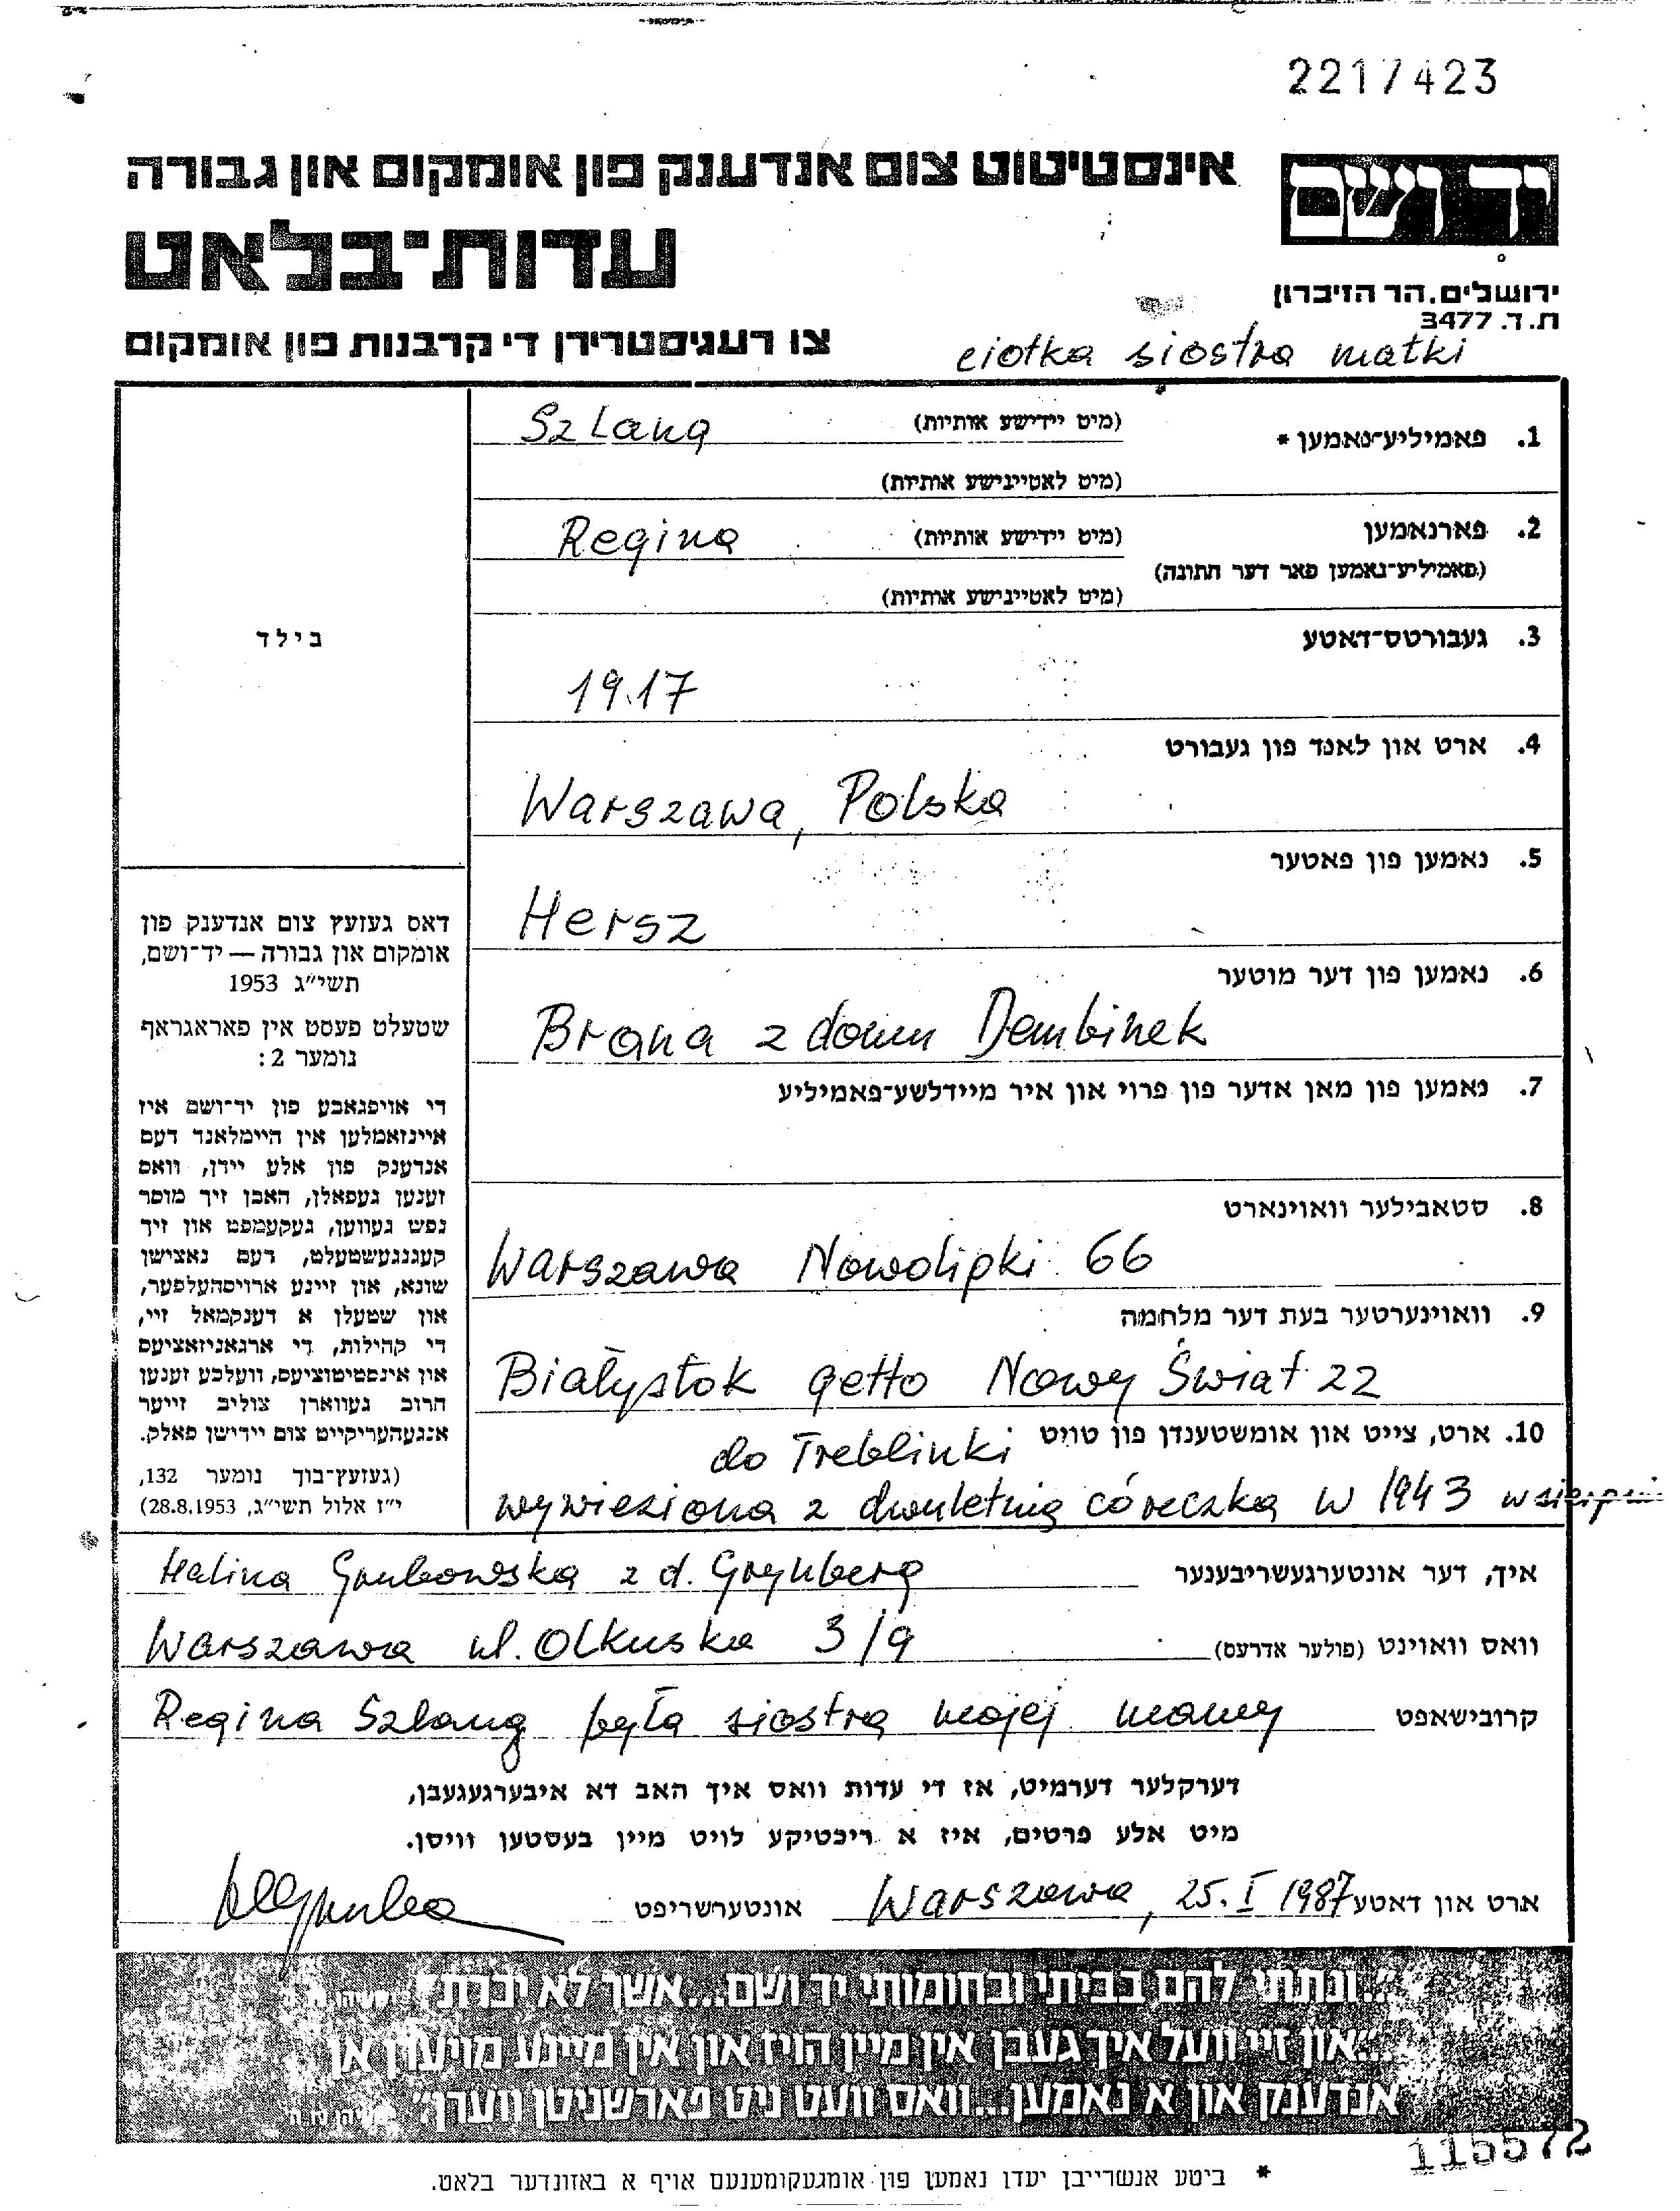 2217423
אינסטיטוט צום אנדענק פון אומקום און גבורה
יד ושם
עדות־בלאט
ירושלים, הר הזיכרון
ת. ד. 3477
צו רעגיסטרירן די קרבנות פון אומקום
ciotka siostra matki
1. פאמיליע־נאמען *
(מיט יידישע אותיות) Szlang
(מיט לאטיינישע אותיות)
2. פארנאמען
(מיט יידישע אותיות) Regina
(פאמיליע־נאמען פאר דער חתונה)
(מיט לאטיינישע אותיות)
בילד
3. געבורטס־דאטע
1917
4. ארט און לאנד פון געבורט
Warszawa, Polska
5. נאמען פון פאטער
Hersz
6. נאמען פון דער מוטער
Brana z domu Dembinek
7. נאמען פון מאן אדער פון פרוי און איר מיידלשע־פאמיליע
8. סטאבילער וואוינארט
Warszawa Nowolipki 66
9. וואוינערטער בעת דער מלחמה
Białystok getto Nowy Świat 22
10. ארט, צייט און אומשטענדן פון טויט
do Treblinki
wywieziona z dwuletnią córeczką w 1943 w sierpniu
דאס געזעץ צום אנדענק פון
אומקום און גבורה — יד־ושם,
תשי״ג 1953
שטעלט פעסט אין פאראגראף
נומער 2:
די אויפגאבע פון יד־ושם איז
איינזאמלען אין היימלאנד דעם
אנדענק פון אלע יידן, וואס
זענען געפאלן, האבן זיך מוסר
נפש געווען, געקעמפט און זיך
קעגנגעשטעלט, דעם נאצישן
שונא, און זיינע ארויסהעלפער,
און שטעלן א דענקמאל זיי,
די קהילות, די ארגאניזאציעס
און אינסטיטוציעס, וועלכע זענען
חרוב געווארן צוליב זייער
אנגעהעריקייט צום יידישן פאלק.
(געזעץ־בוך נומער 132,
י״ז אלול תשי״ג, 28.8.1953)
איך, דער אונטערגעשריבענער Halina Grubowska z d. Grynberg
וואס וואוינט (פולער אדרעס) Warszawa ul. Olkuska 3/9
קרובישאפט Regina Szlang była siostrą mojej mamy
דערקלער דערמיט, אז די עדות וואס איך האב דא איבערגעגעבן,
מיט אלע פרטים, איז א ריכטיקע לויט מיין בעסטען וויסן.
ארט און דאטע Warszawa, 25. I 1987 אונטערשריפט
״...ונתתי להם בביתי ובחומותי יד ושם...אשר לא יכרת״
״...און זיי וועל איך געבן אין מיין הויז און אין מיינע מויערן אן
אנדענק און א נאמען...וואס וועט ניט פארשניטן ווערן״
115572
* ביטע אנשרייבן יעדן נאמען פון אומגעקומענעם אויף א באזונדער בלאט.